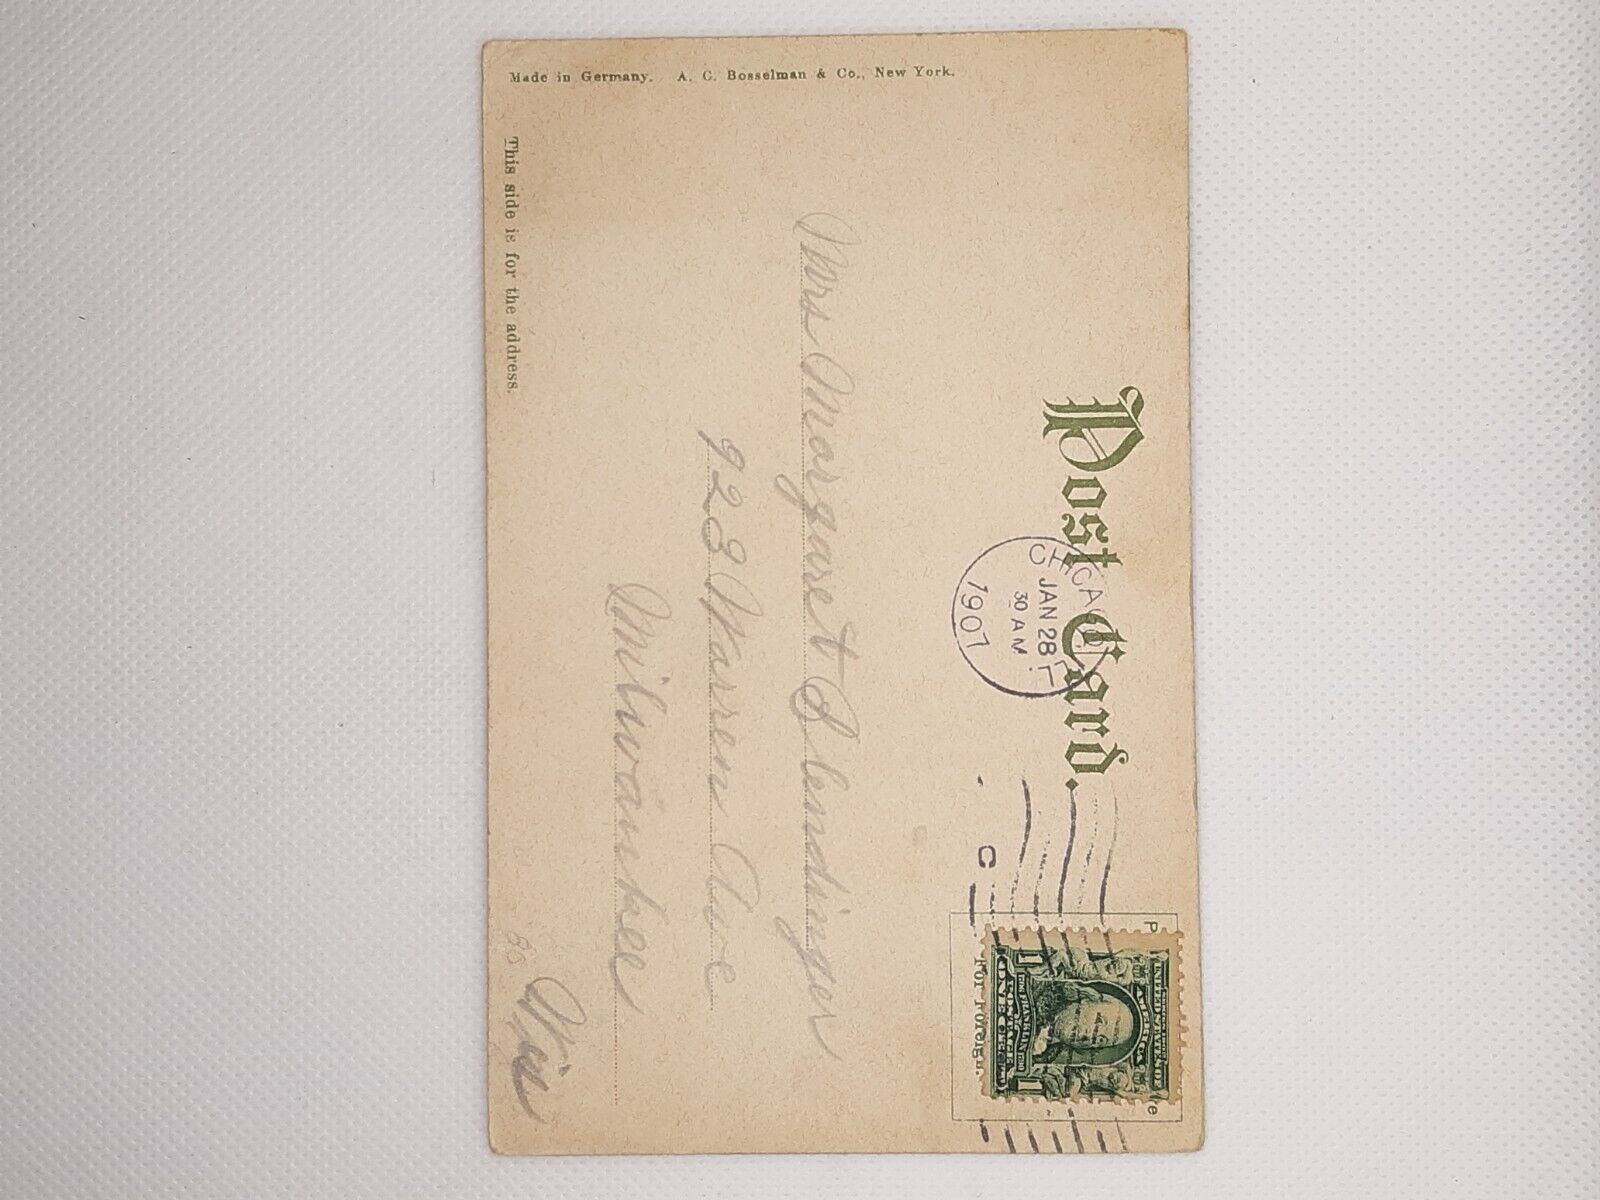 Post Card.
CHICAGO, ILL.
JAN 28
30 AM
1907
C
UNITED STATES OF
AMERICA
1706 FRANKLIN 1790
POSTAGE
1 ONE CENT 1
For Foreign.
Mrs Margaret Blendinger
923 Warren Ave
Milwaukee
Wis
85
This side is for the address.
Made in Germany. A. C. Bosselman & Co., New York.